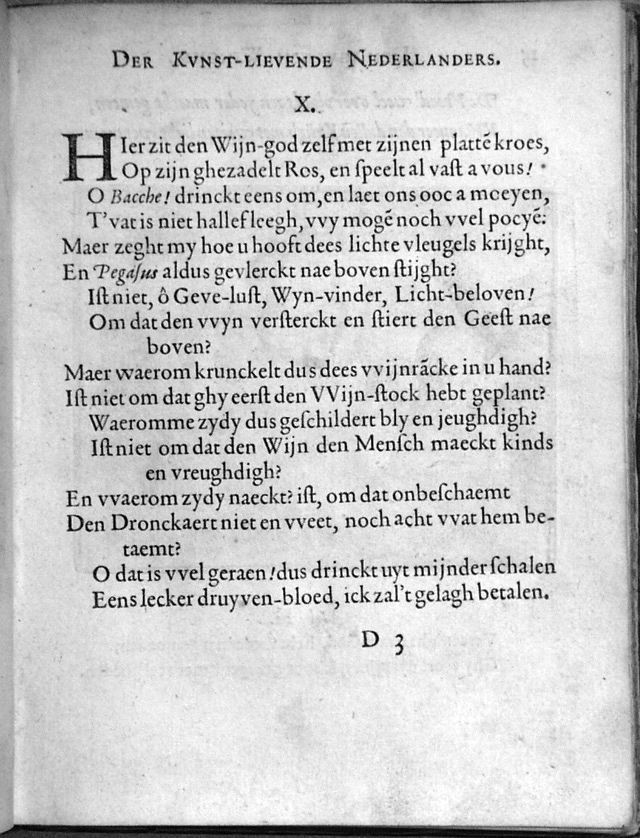 DER KVNST-LIEVENDE NEDERLANDERS.
X.
HIer zit den Wijn-god zelf met zijnen plattẽ kroes,
Op zijn ghezadelt Ros, en ſpeelt al vaſt a vous!
O Bacche! drinckt eens om, en laet ons ooc a moeyen,
T'vat is niet half leegh, vvy mogẽ noch vvel pocyẽ:
Maer zeght my hoe u hooft dees lichte vleugels krijght,
En Pegaſus aldus gevlerckt nae boven ſtijght?
Iſt niet, ô Geve-luſt, Wyn-vinder, Licht-beloven!
Om dat den vvyn verſterckt en ſtiert den Geeſt nae
boven?
Maer waerom krunckelt dus dees vvijnrãcke in u hand?
Iſt niet om dat ghy eerſt den VVijn-ſtock hebt geplant?
Waeromme zydy dus geſchildert bly en jeughdigh?
Iſt niet om dat den Wijn den Menſch maeckt kinds
en vreughdigh?
En vvaerom zydy naeckt? iſt, om dat onbeſchaemt
Den Dronckaert niet en vveet, noch acht vvat hem be-
taemt?
O dat is vvel geraen! dus drinckt uyt mijnder ſchalen
Eens lecker druyven-bloed, ick zal't gelagh betalen.
D 3